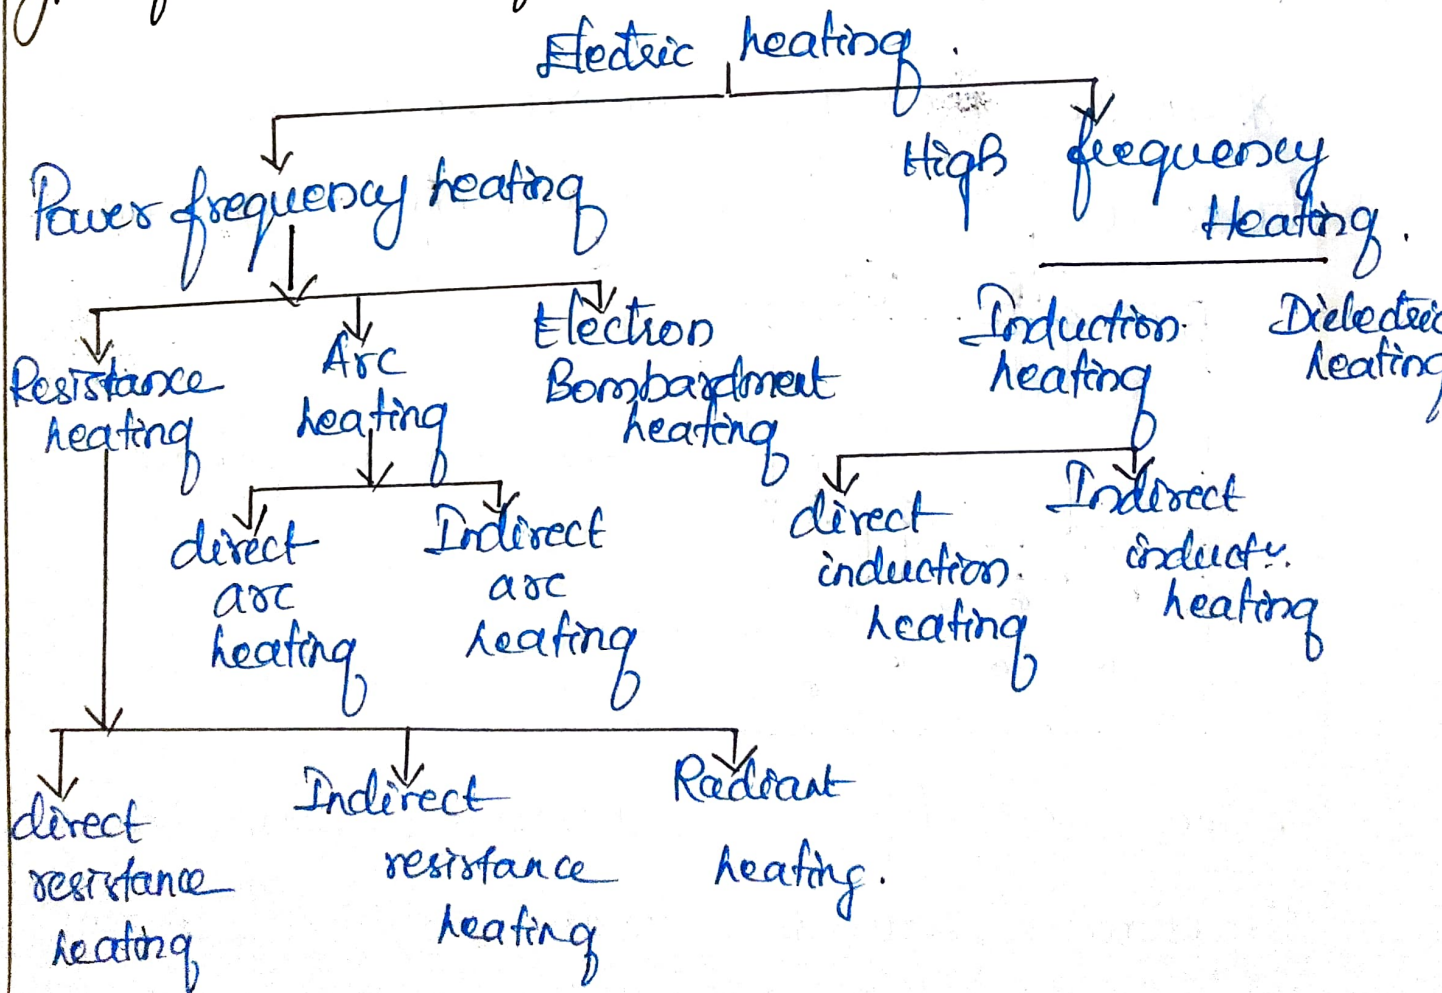 Electric heating.
Power frequency heating
High frequency
Heating.
Resistance
heating
Arc
heating
Electron
Bombardment
heating
Induction
heating
Dielectric
heating
direct
arc
heating
Indirect
arc
heating
direct
induction
heating
Indirect
induct".
heating
direct
resistance
heating
Indirect
resistance
heating
Radiant
heating.